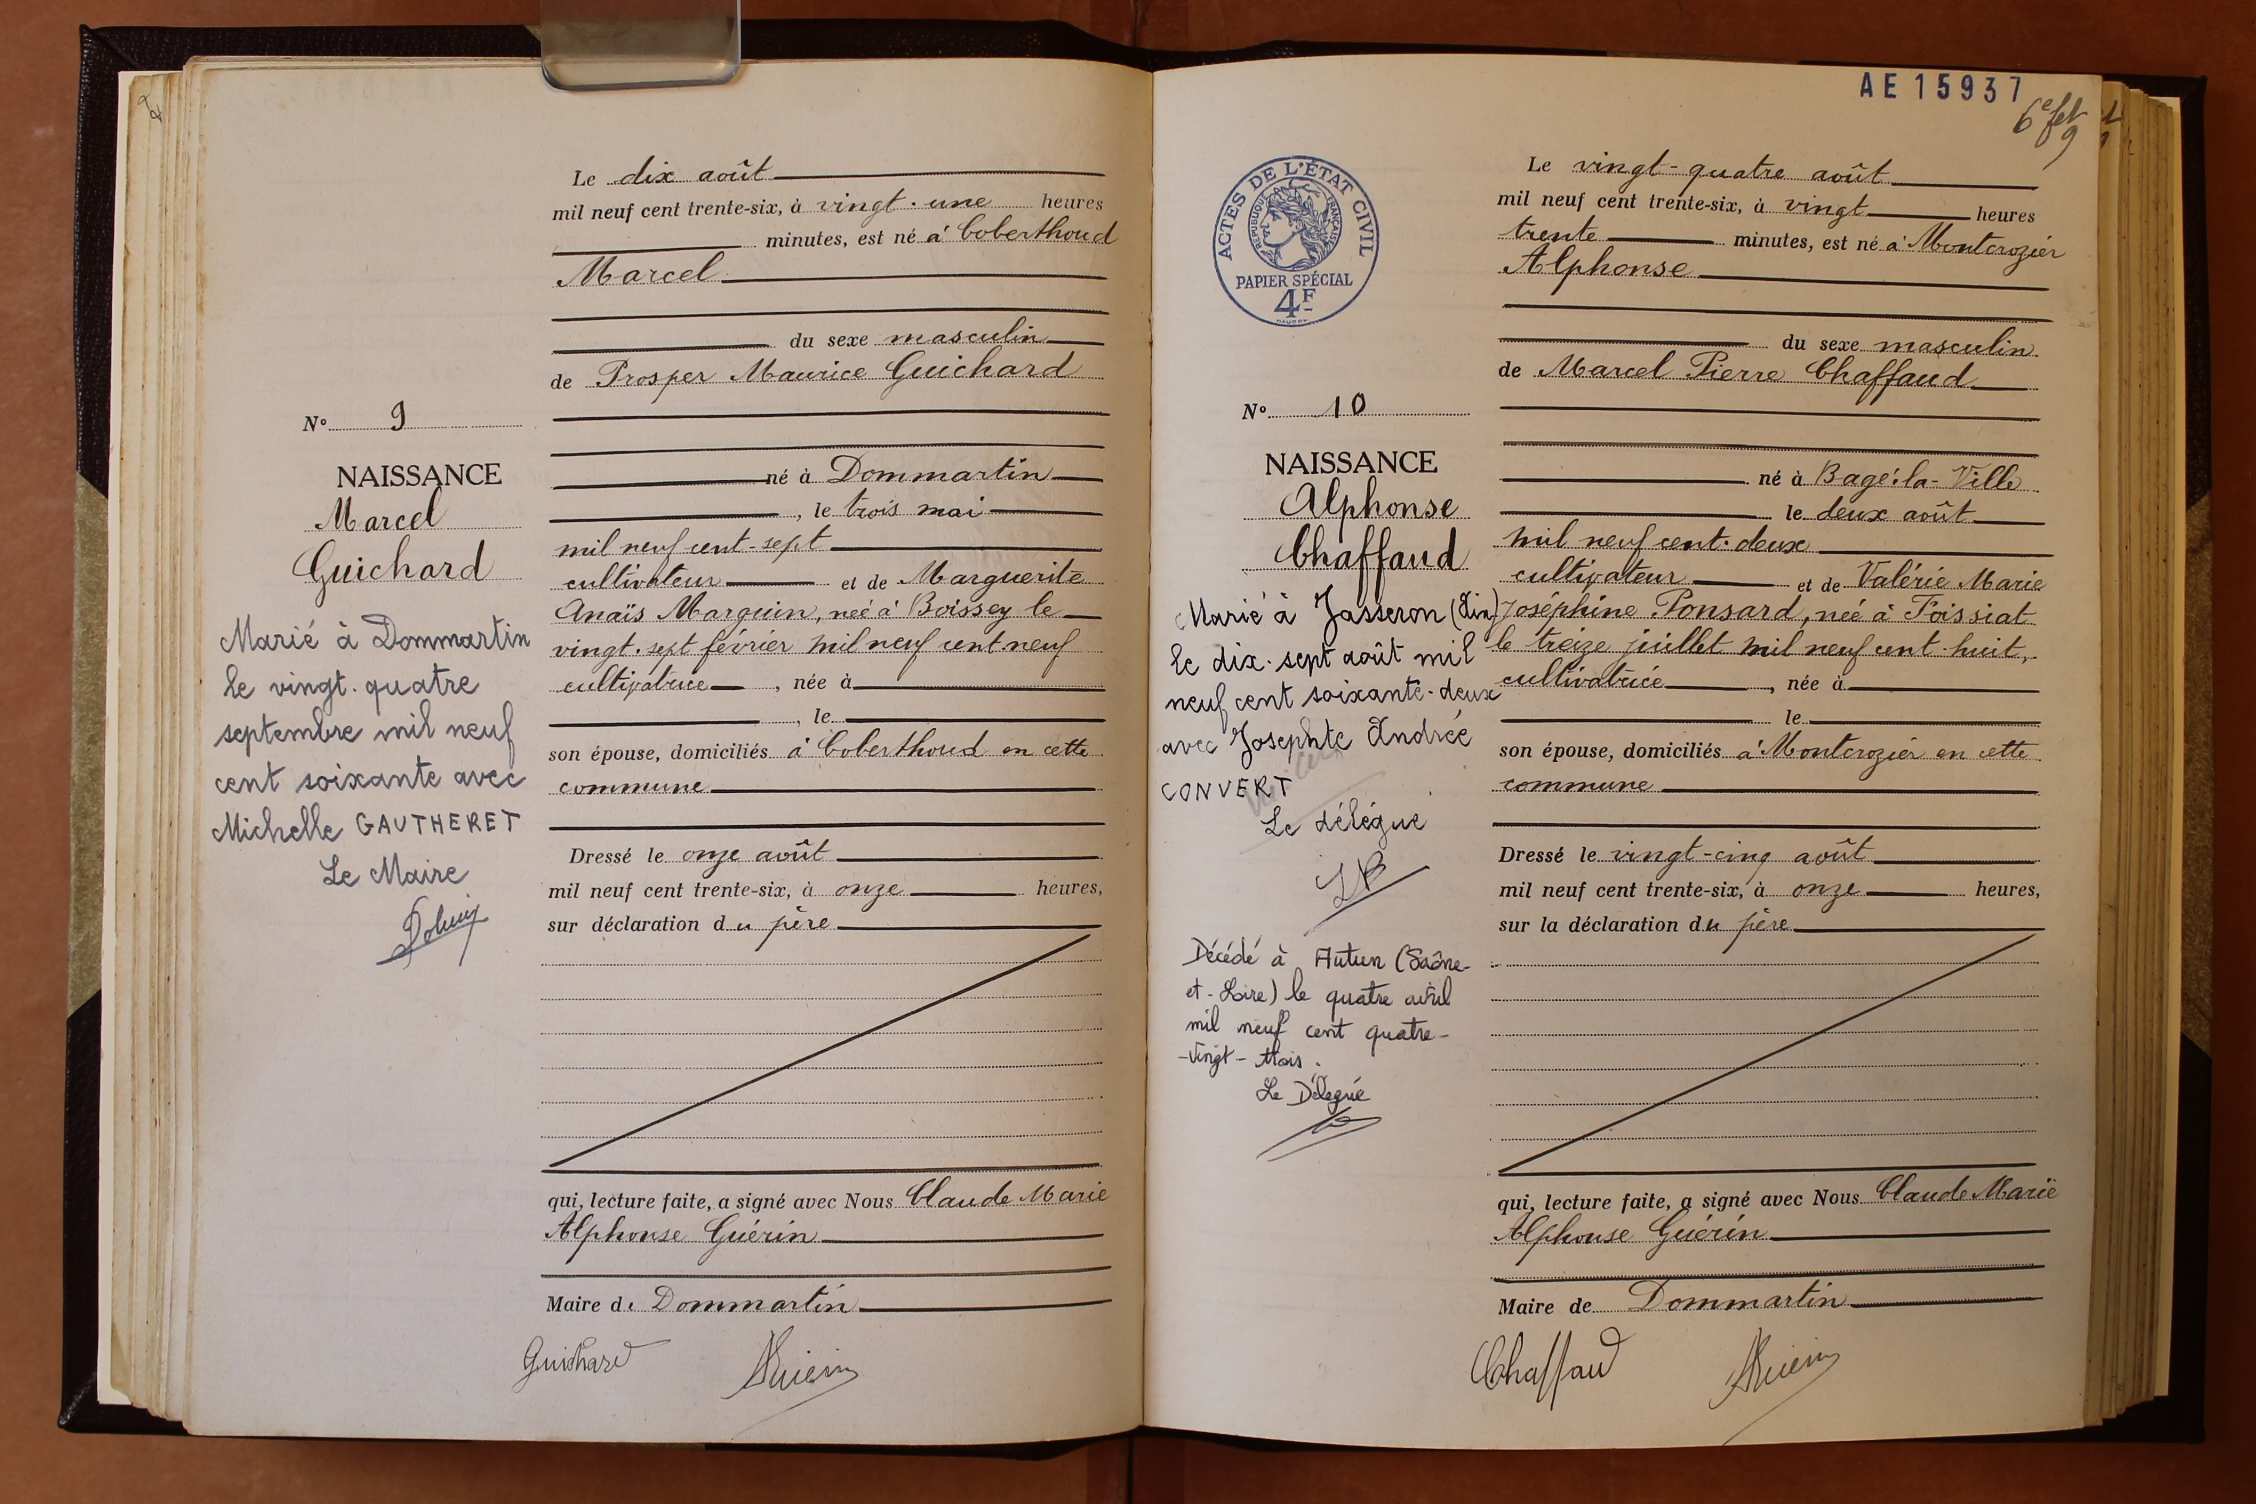 Le dix août
mil neuf cent trente-six, à vingt-une heures
minutes, est né à Coberthoud
Marcel
du sexe masculin
de Prosper Maurice Guichard
N° 9
né à Dommartin
NAISSANCE
, le trois mai
Marcel
mil neuf cent-sept
Guichard
cultivateur et de Marguerite
Anaïs Marguin, née à Boissey le
vingt-sept février mil neuf cent neuf
cultivatrice, née à
, le
son épouse, domiciliés à Coberthoud en cette
commune
Marié à Dommartin
le vingt-quatre
septembre mil neuf
cent soixante avec
Michelle GAUTHERET
Le Maire
Dressé le onze août
mil neuf cent trente-six, à onze heures,
sur déclaration du père
qui, lecture faite, a signé avec Nous Claude Marie
Alphonse Guérin
Maire de Dommartin
Guichard
AE15937
6e fet
9
ACTES DE L'ÉTAT CIVIL
RÉPUBLIQUE FRANÇAISE
PAPIER SPÉCIAL
4F
Le vingt-quatre août
mil neuf cent trente-six, à vingt heures
trente minutes, est né à Montcrozier
Alphonse
du sexe masculin
de Marcel Pierre Chaffaud
N° 10
NAISSANCE
Alphonse
Chaffaud
né à Bagé-la-Ville
le deux août
mil neuf cent-deux
cultivateur et de Valérie Marie
Joséphine Ponsard, née à Foissiat
le treize juillet mil neuf cent-huit,
cultivatrice, née à
le
son épouse, domiciliés à Montcrozier en cette
commune
Marié à Jasseron (Ain)
le dix-sept août mil
neuf cent soixante-deux
avec Josephte Andrée
CONVERT
Le délégué
Décédé à Autun (Saône-
et-Loire) le quatre avril
mil neuf cent quatre-
-vingt-trois.
Le Délégué
Dressé le vingt-cinq août
mil neuf cent trente-six, à onze heures,
sur la déclaration du père
qui, lecture faite, a signé avec Nous Claude Marie
Alphonse Guérin
Maire de Dommartin
Chaffaud